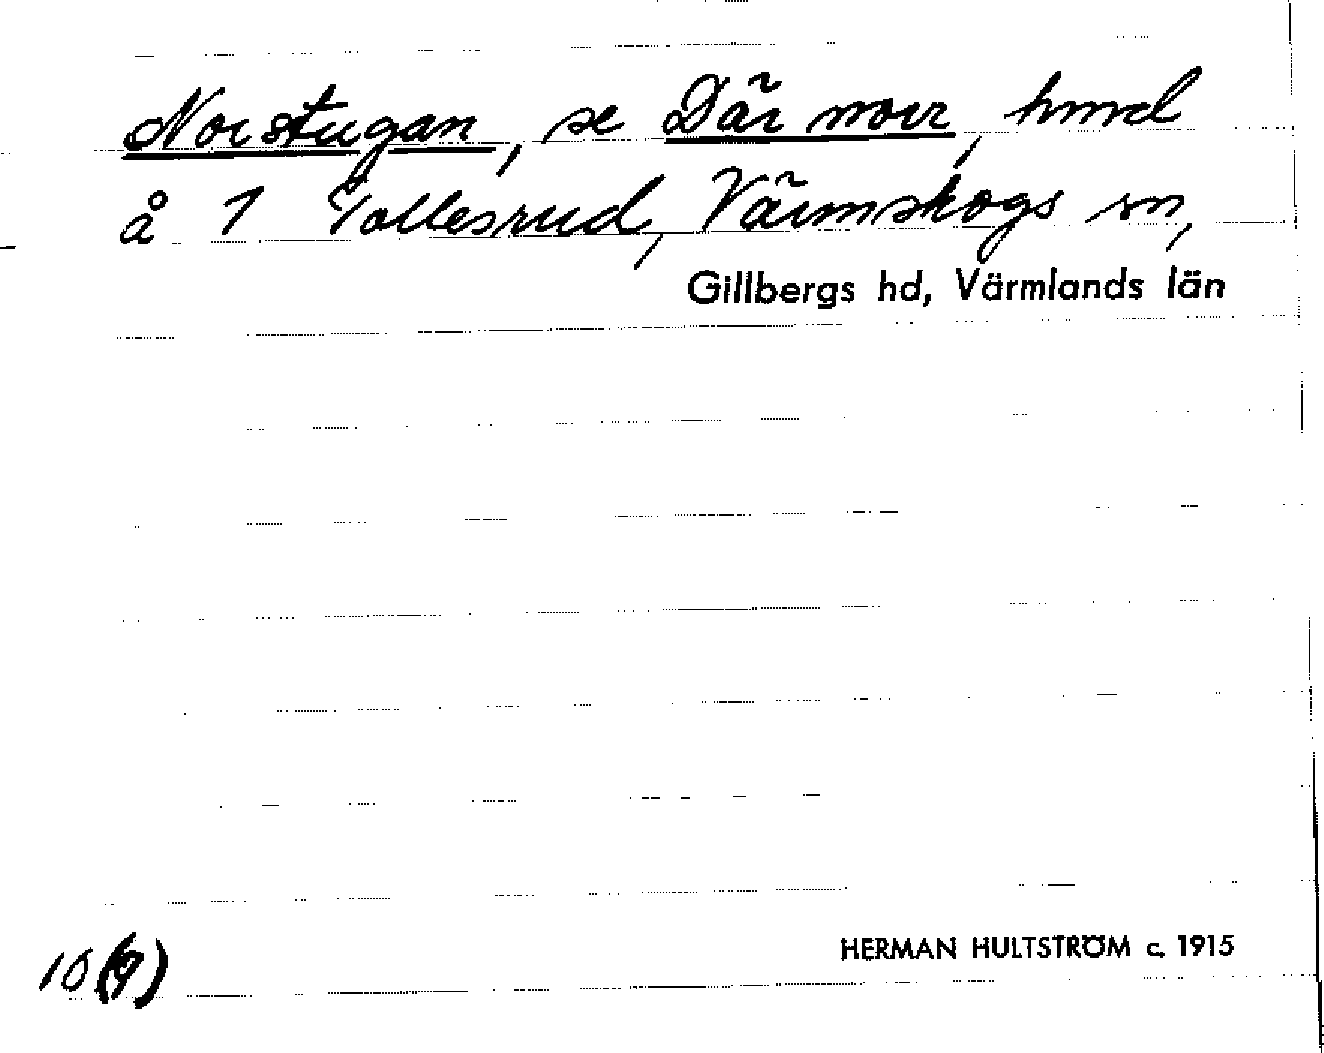 Norstugan, se Där norr, hmd
å 1 Tollesrud, Värmskogs sn,
Gillbergs hd, Värmlands län
HERMAN HULTSTRÖM c. 1915
10(9)